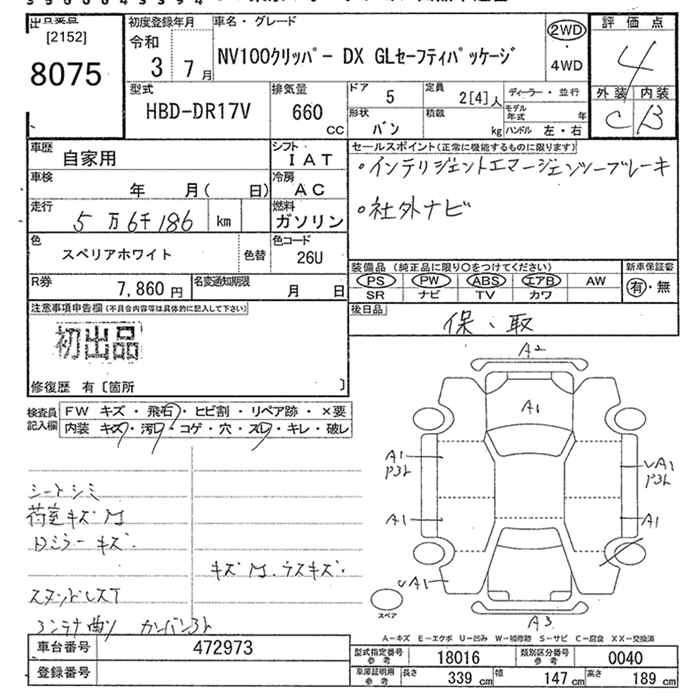 出品番号
[2152]
8075
初度登録年月
令和
3 7月
車名・グレード
NV100クリッパー DX GLセーフティパッケージ
2WD
・
4WD
評価点
4
外装 内装
C B
型式
HBD-DR17V
排気量
660
CC
ドア 5
定員 2[4]人
形状 バン
積載 kg
ディーラー・並行
モデル年式 年
ハンドル 左・右
車歴 自家用
シフト IAT
車検 年 月( 日)
冷房 AC
走行 5万6千186 km
燃料 ガソリン
色 スペリアホワイト
色替
色コード 26U
R券 7,860円
名変通知期限 月 日
セールスポイント(正常に機能するものに限ります)
・インテリジェントエマージェンシーブレーキ
・社外ナビ
装備品(純正品に限り○をつけてください)
PS PW ABS エアB AW
SR ナビ TV カワ
新車保証書
有・無
後日品
保、取
注意事項申告欄(不具合内容等は具体的に記入して下さい)
初出品
修復歴 有〔箇所 〕
検査員記入欄
FW キズ・飛石・ヒビ割・リペア跡・×要
内装 キズ・汚レ・コゲ・穴・スレ・キレ・破レ
シートシミ
荷室キズM
Dミラーキズ
キズM.ラスキズ.
スタッドレスT
コンテナ曲リ カンバン3ト
A2
A1
A1
P3ト
A1
P3ト
A1
A1
A1
A3
スペア
A-キズ E-エクボ U-凹み W-補修跡 S-サビ C-腐食 XX-交換済
車台番号 472973
登録番号
型式指定番号 参考 18016
類別区分番号 参考 0040
車庫証明用 参考 長さ 339cm 幅 147cm 高さ 189cm